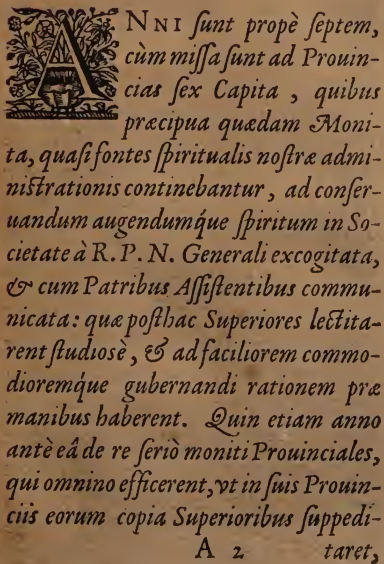 ANNI sunt propè septem,
cùm missa sunt ad Prouin-
cias sex Capita, quibus
præcipua quædam Moni-
ta, quasi fontes spiritualis nostræ admi-
nistrationis continebantur, ad conser-
uandum augendumq́ue spiritum in So-
cietate à R. P. N. Generali excogitata,
& cum Patribus Assistentibus commu-
nicata: quæ posthac Superiores lectita-
rent studiosè, & ad faciliorem commo-
dioremq́ue gubernandi rationem præ
manibus haberent. Quin etiam anno
antè eâ de re seriò moniti Prouinciales,
qui omnino efficerent, vt in suis Prouin-
ciis eorum copia Superioribus suppedi-
A 2 taret,